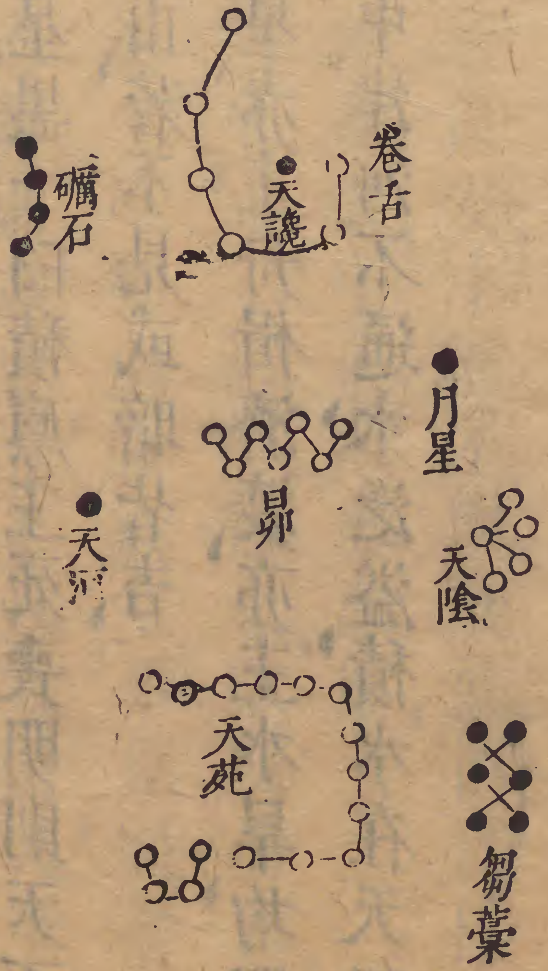 卷舌
天讒
礪石
月星
昴
天陰
天河
天苑
芻藁